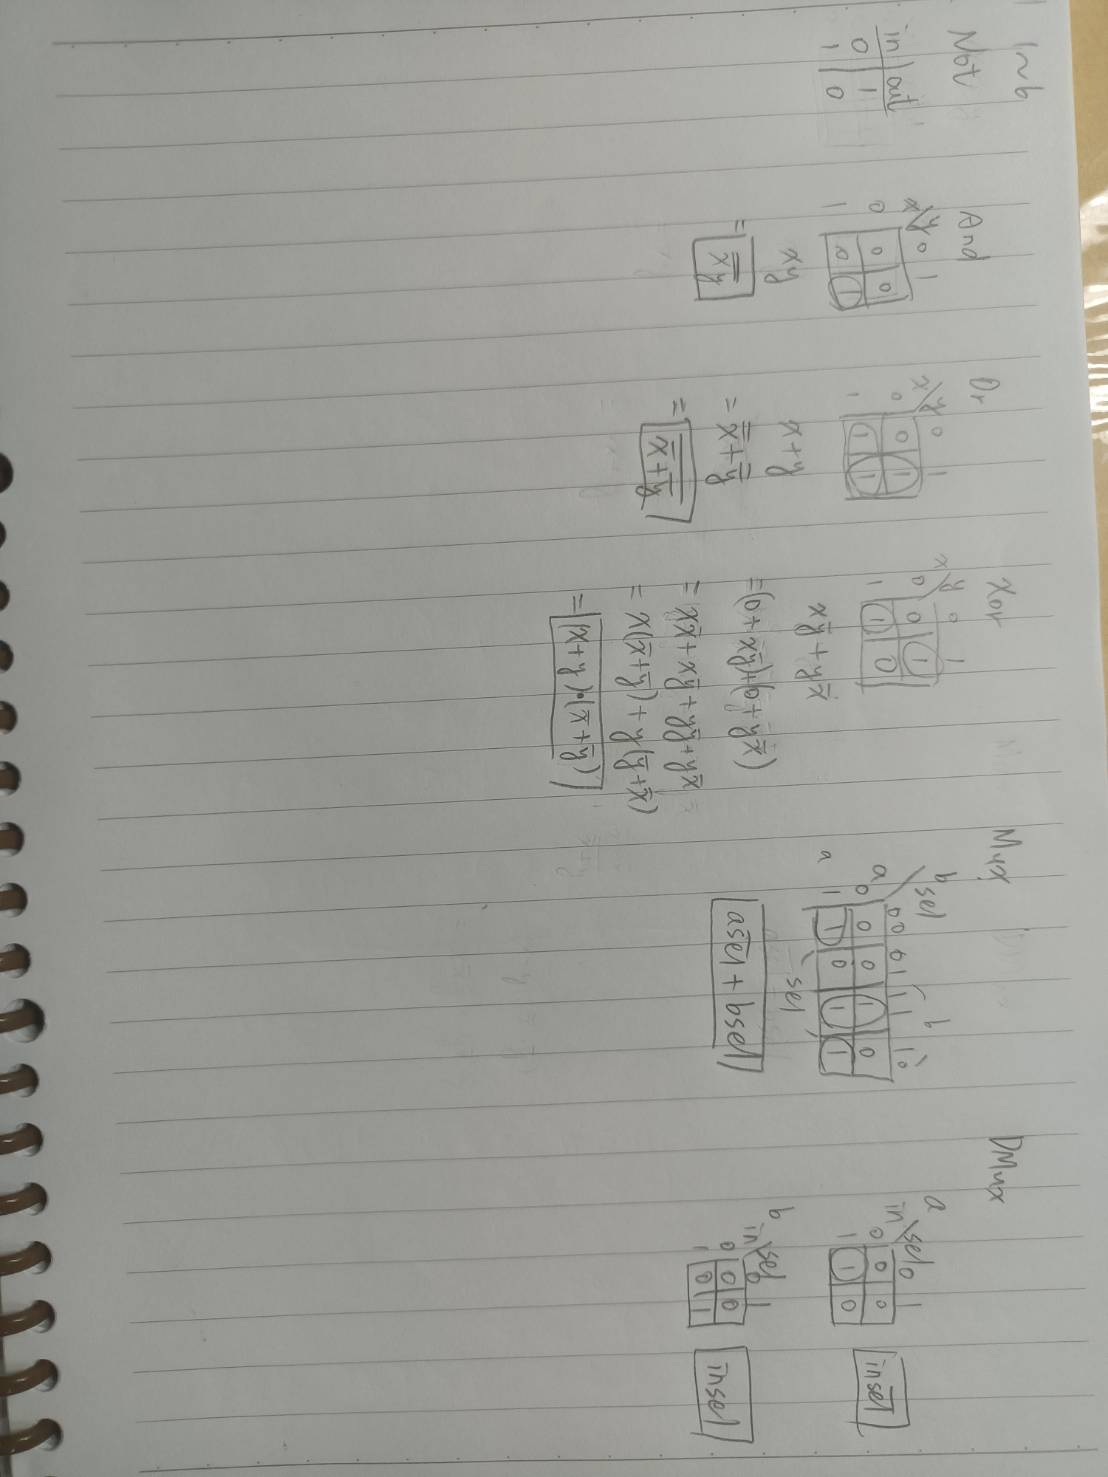 1~6
Not
in out
0 1
1 0
And
x y 0 1
0 0 0
1 0 1
xy
= x̿y̿
Or
x y 0 1
0 0 1
1 1 1
x+y
= x̿+y̿
= \overline{\overline{x̄+ȳ}}
Xor
x y 0 1
0 0 1
1 1 0
xȳ+yx̄
=(0+xȳ)+(0+yx̄)
= xx̄+xȳ+yȳ+yx̄
= x(x̄+ȳ)+y(ȳ+x̄)
= (x+y)·(x̄+ȳ)
Mux
b sel b
00 01 11 10
a 0 0 0 1 0
a 1 1 0 1 1
sel
a\overline{sel} + bsel
DMux
a
in sel 0 1
0 0 0
1 1 0
in\overline{sel}
b
in sel 0 1
0 0 0
1 0 1
insel